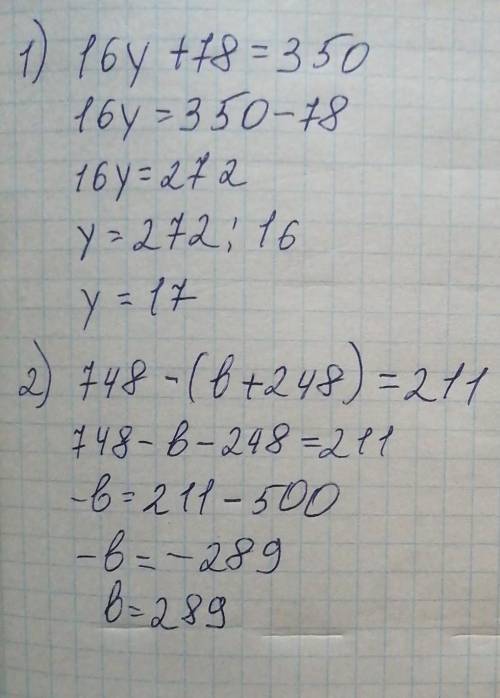 1) 16y+78=350
16y=350-78
16y=272
y=272:16
y=17
2) 748-(в+248)=211
748-в-248=211
-в=211-500
-в=-289
в=289